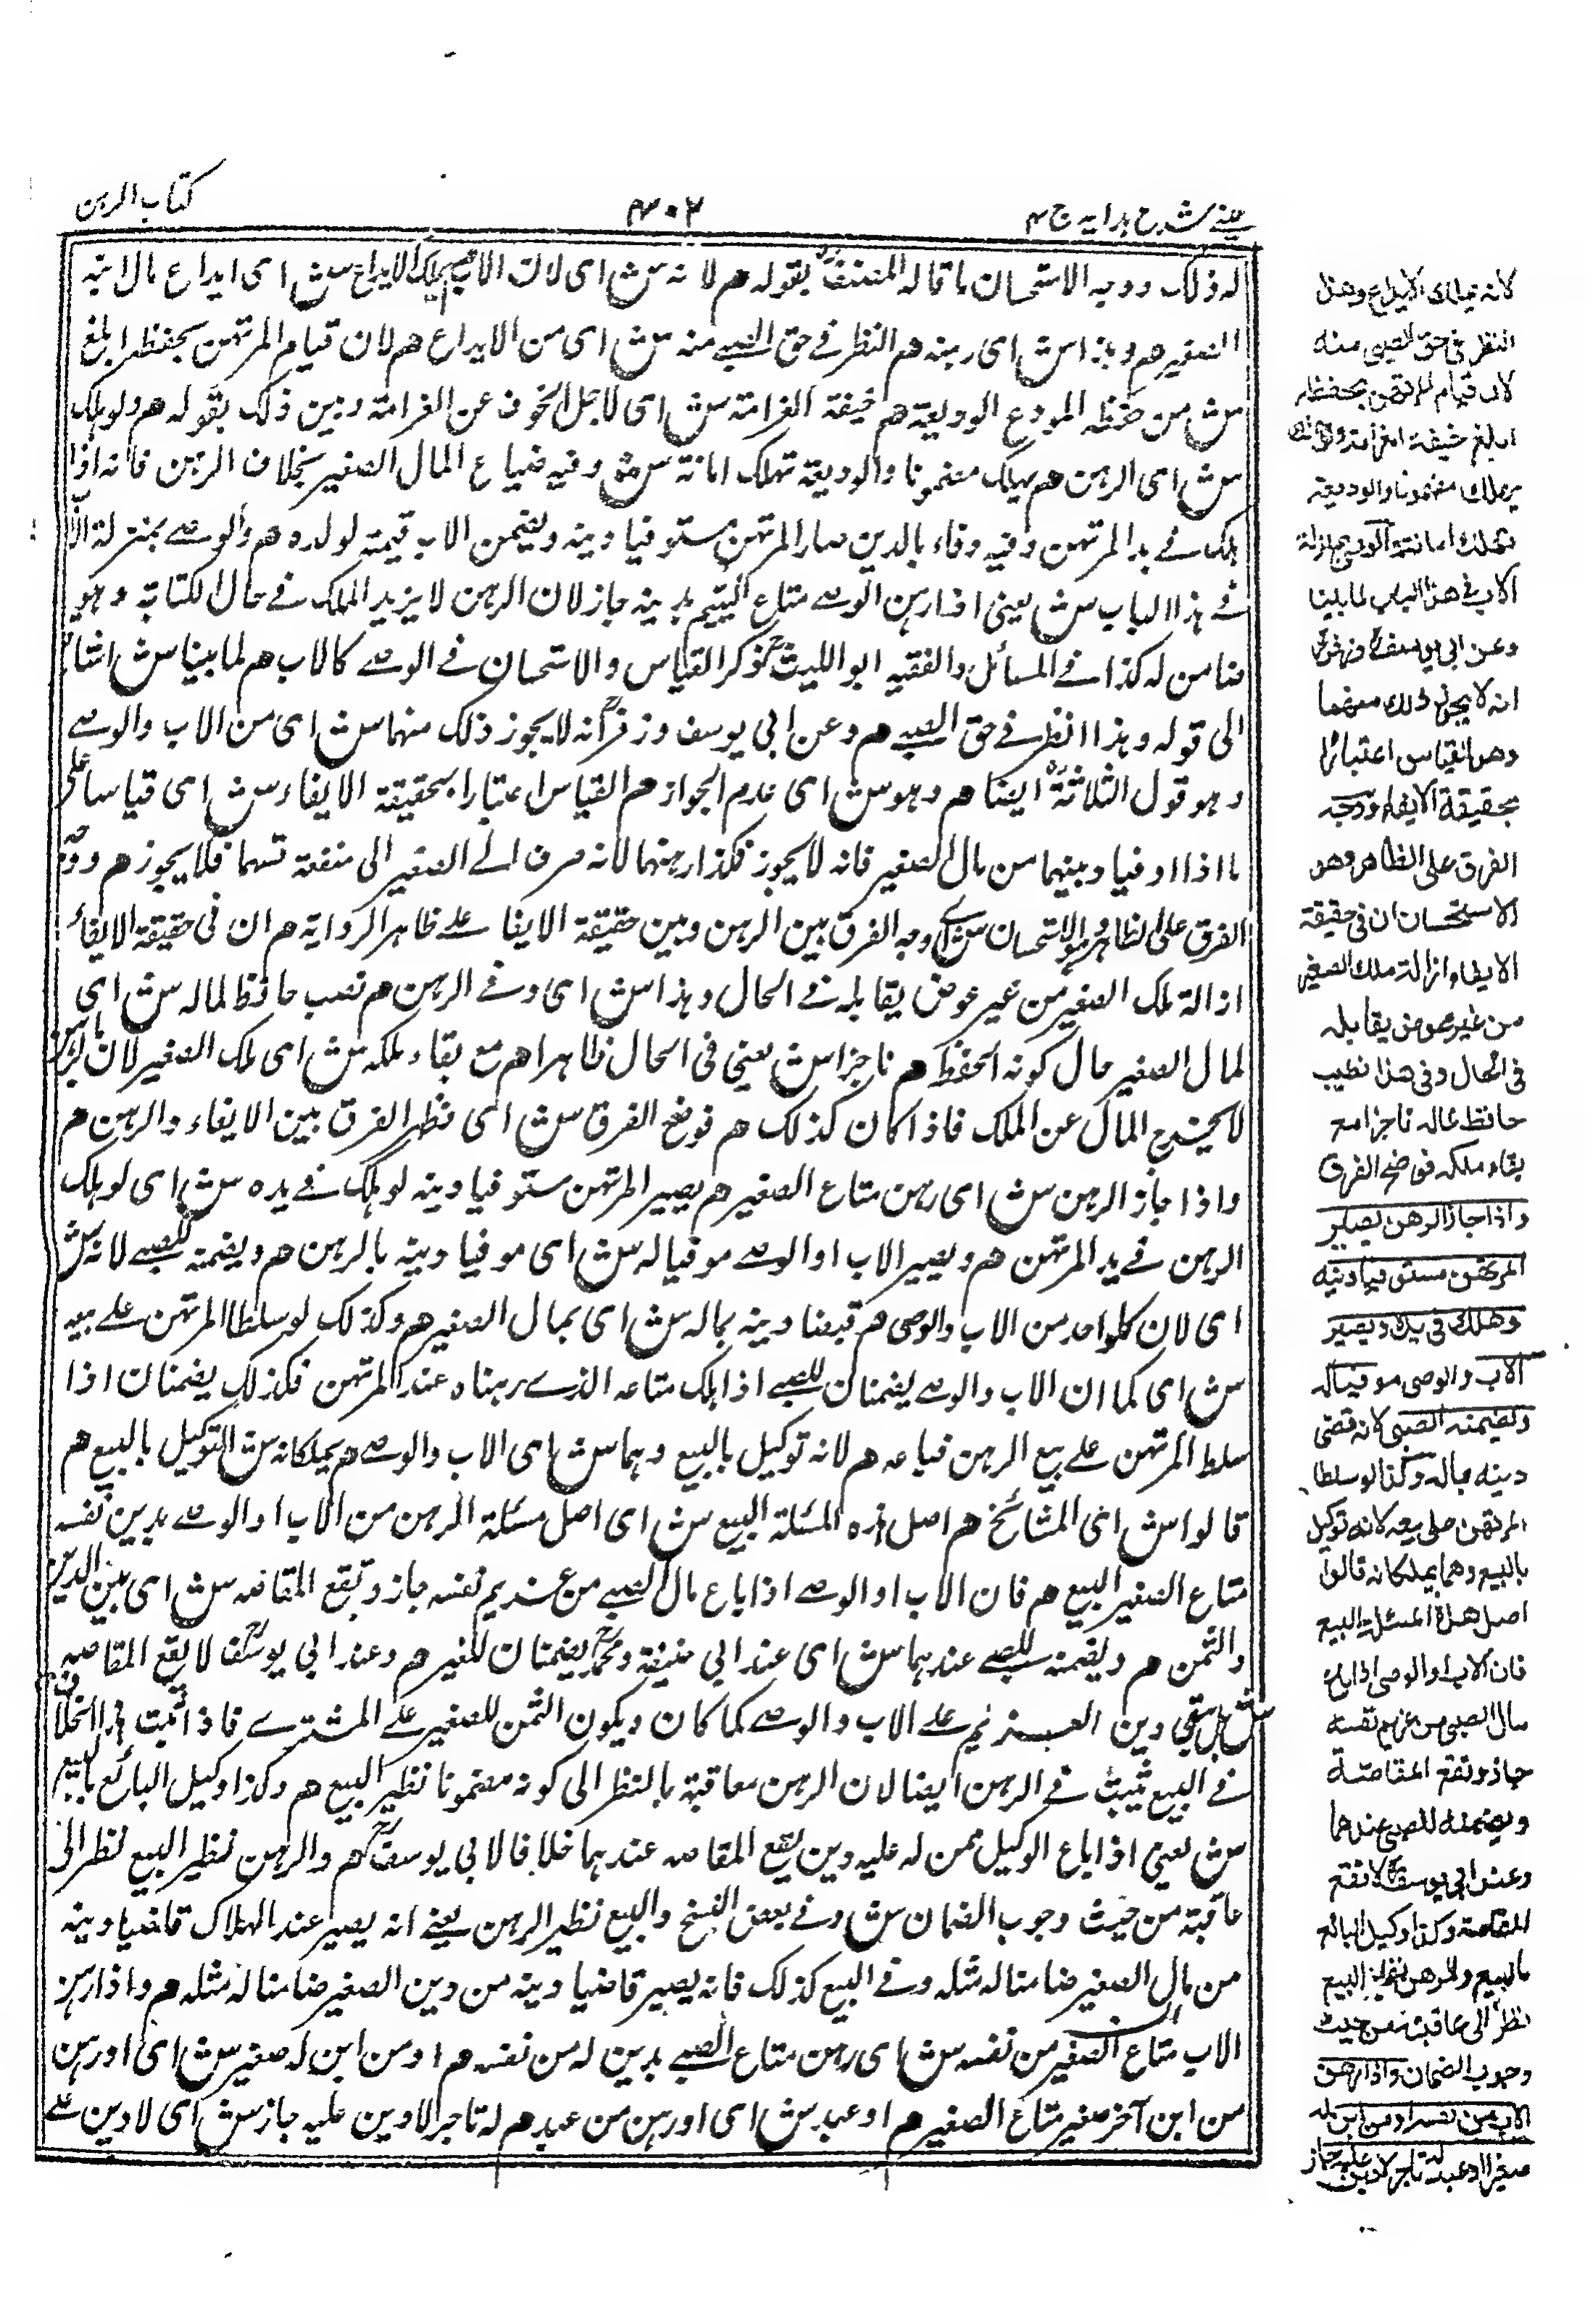 عينے شرح ہدایہ ج ۴
۳۰۲
کتاب الرہن
له ذلک ووجه الاستحسان ما قاله المصنفؒ بقوله هم لانه ش ای لان الاب هم یملک الایداع ش ای ایداع مال ابنه
الصغیر هم وہذا ش ای رہنه هم انظر فے حق الصبے منه ش ای من الایداع هم لان قیام المرتہن بحفظه ابلغ
ش من حفظ المودع الودیعة هم خیفة الغرامة ش ای لاجل الخوف عن الغرامة وبین ذلک بقوله هم ولو ہلک
ش ای الرہن هم یہلک مضمونا والودیعة تہلک امانة ش وفیه ضیاع المال الصغیر بخلاف الرہن فانه اذا
ہلک فے ید المرتہن وفیه وفاء بالدین صار المرتہن مستوفیا دینه ویضمن الاب قیمته لولده هم والوصے بمنزلة الاب
فے ہذا الباب ش یعنی اذا رہن الوصے متاع الیتیم بدینه جاز لان الرہن لا یزید الملک فے حال الکتابة وہو
ضامن له کذا فے المسائل والفقیه ابو اللیثؒ ذکر القیاس والاستحسان فے الوصے کالاب هم لما بینا ش اشار
الی قوله وہذا انظر فے حق الصبے هم وعن ابی یوسف وزفرؒ انه لا یجوز ذلک منہما ش ای من الاب والوصے
وہو قول الثلاثةؒ ایضا هم وہو ش ای عدم الجواز هم القیاس اعتبارا بحقیقة الایفاء ش ای قیاسا علی
ما اذا اوفیا دینہما من مال الصغیر فانه لا یجوز فکذا رہنہما لانه صرف مال الصغیر الی منفعة نفسہما فلا یجوز هم ووجه
الفرق علی الظاہر وہو الاستحسان ش ای وجه الفرق بین الرہن وبین حقیقة الایفا علے ظاہر الروایة هم ان فی حقیقة الایفاء
ازالة ملک الصغیر من غیر عوض یقابله فے الحال وہذا ش ای وفے الرہن هم نصب حافظ لماله ش ای
لمال الصغیر حال کونه الحفظ هم ناجزا ش یعنی فی الحال ظاہرا هم مع بقاء ملکه ش ای ملک الصغیر لان بالرہن
لا یخرج المال عن الملک فاذا کان کذلک هم فوضح الفرق ش ای فظہر الفرق بین الایفاء والرہن هم
واذا جاز الرہن ش ای رہن متاع الصغیر هم یصیر المرتہن مستوفیا دینه لو ہلک فے یده ش ای لو ہلک
الرہن فے ید المرتہن هم ویصیر الاب او الوصے موفیا له ش ای موفیا دینه بالرہن هم ویضمنه للصبے لانه ش
ای لان کل واحد من الاب والوصی هم قبضا دینه بماله ش ای بمال الصغیر هم وکذلک لو سلطا المرتہن علے بیعه
ش ای کما ان الاب والوصے یضمنان للصبے اذا ہلک متاعه الذے رہناه عند المرتہن فکذلک یضمنان اذا
سلط المرتہن علے بیع الرہن فباعه هم لانه توکیل بالبیع وہما ش ای الاب والوصے هم یملکانه ش التوکیل بالبیع هم
قالوا ش ای المشائخ هم اصل ہذه المسئلة البیع ش ای اصل مسئلة الرہن من الاب او الوصے بدین نفسه
متاع الصغیر البیع هم فان الاب او الوصے اذا باع مال الصبے من غریم نفسه جاز وتقع المقاصه ش ای بین الدین
والثمن هم ویضمنه للصبے عندہما ش ای عند ابی حنیفة ومحمدؒ یضمنان للغیر هم وعند ابی یوسفؒ لا یقع المقاصه
ش بل یبقی دین الغریم علے الاب والوصے کما کان ویکون الثمن للصغیر علے المشترے فاذا ثبت ہذا الخلاف
فے البیع ثبت فے الرہن ایضا لان الرہن معاقبة بالنظر الی کونه مضمونا نظیر البیع هم وکذا وکیل البائع بالبیع
ش یعنی اذا باع الوکیل ممن له علیه دین یقع المقاصه عندہما خلافا لابی یوسفؒ هم والرہن نظیر البیع نظرا الی
عاقبة من حیث وجوب الضمان ش وفے بعض النسخ والبیع نظیر الرہن یعنے انه یصیر عند الہلاک قاضیا دینه
من مال الصغیر ضامنا له مثله وفے البیع کذلک فانه یصیر قاضیا دینه من دین الصغیر ضامنا له مثله هم واذا رہن
الاب متاع الصغیر من نفسه ش ای رہن متاع الصبے بدین له من نفسه هم او من ابن له صغیر ش ای او رہن
من ابن آخر صغیر متاع الصغیر هم او عبد ش ای او رہن من عبد هم له تاجر لا دین علیه جاز ش ای لا دین علے
لانه یملک الایداع وهذا
انظر فی حق الصبی منه
لان قیام المرتهن بحفظه
ابلغ خیفة الغرامة ولو هلك
یهلك مضمونا والودیعة
تهلك امانة والوصی بمنزلة
الاب فی هذا الباب لما بینا
وعن ابی یوسفؒ وزفرؒ
انه لا یجوز ذلك منهما
وهو القیاس اعتبارا
بحقیقة الایفاء ووجه
الفرق علی الظاهر وهو
الاستحسان ان فی حقیقة
الایفاء ازالة ملك الصغیر
من غیر عوض یقابله
فی الحال وفی هذا نصب
حافظ لماله ناجزا مع
بقاء ملکه فوضح الفرق
واذا جاز الرهن یصیر
المرتهن مستوفیا دینه
وهلك فی یده ویصیر
الاب والوصی موفیا له
ویضمنه الصبی لانه قضی
دینه بماله وکذا لو سلطا
المرتهن علی بیعه لانه توکیل
بالبیع وهما یملکانه قالوا
اصل هذه المسئلة البیع
فان الاب او الوصی اذا باع
مال الصبی من غریم نفسه
جاز وتقع المقاصة
ویضمنه للصبی عندهما
وعند ابی یوسفؒ لا تقع
المقاصة وکذا وکیل البائع
بالبیع والرهن نظیر البیع
نظرا الی عاقبته من حیث
وجوب الضمان واذا رهن
الاب من نفسه او من ابن له
صغیر او عبد له تاجر لا دین علیه جاز